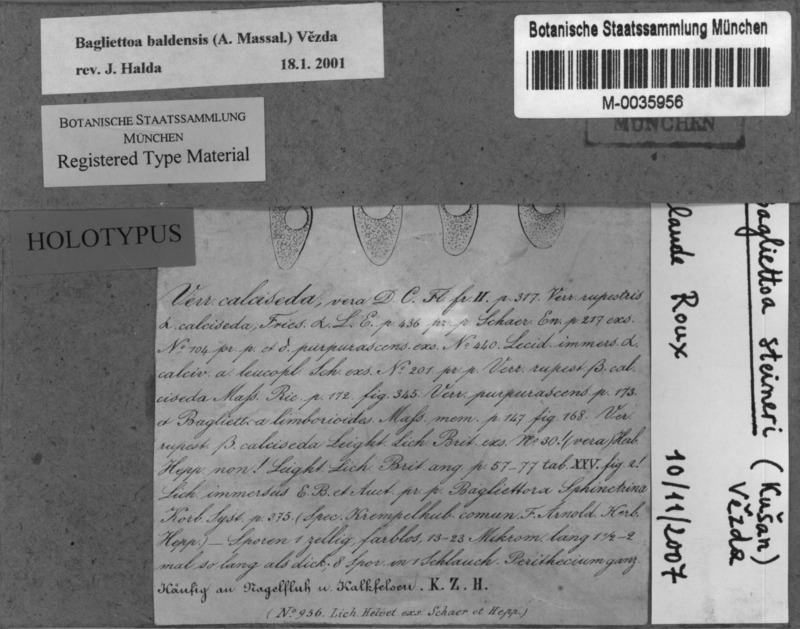 Bagliettoa baldensis (A. Massal.) Vězda
rev. J. Halda 18.1. 2001
BOTANISCHE STAATSSAMMLUNG
MÜNCHEN
Registered Type Material
Botanische Staatssammlung München
M-0035956
MÜNCHEN
HOLOTYPUS
Verr. calciseda, vera D. C. Fl. fr. II. p. 317. Verr. rupestris
α. calciseda, Fries. L. E. p. 436 pr. p. Schaer. En. p. 217 exs.
No 104. pr. p. et δ. purpurascens. exs. No 440. Lecid. immers. α.
calciv. a. leucopl. Sch. exs. No 201. pr. p. Verr. rupest. β. cal-
ciseda Mass. Ric. p. 172. fig. 345. Verr. purpurascens p. 173.
et Bagliett. a limborioides. Mass. mem. p. 147. fig. 168. Ver.
rupest. β. calciseda Leight. Lich. Brit. exs. No 30.! (vera) Herb.
Hepp. non! Leight. Lich. Brit. ang. p. 57-77 tab. XXV. fig. 2!
Lich. immersus E. B. et Auct. pr. p. Bagliettora Sphinctrina
Körb. Syst. p. 375. (Spec. Krempelhub. comun. F. Arnold. Herb.
Hepp.) — Sporen 1 zellig, farblos, 13-23 Mikrom. lang 1½-2
mal so lang als dick. 8 Spor. in 1 Schlauch. Perithecium ganz.
Häufig an Nagelfluh u. Kalkfelsen. K. Z. H.
(No 936. Lich. Helvet. exs. Schaer. et Hepp.)
Bagliettoa steineri (Kušan)
Vězda
laude Roux 10/11/2007